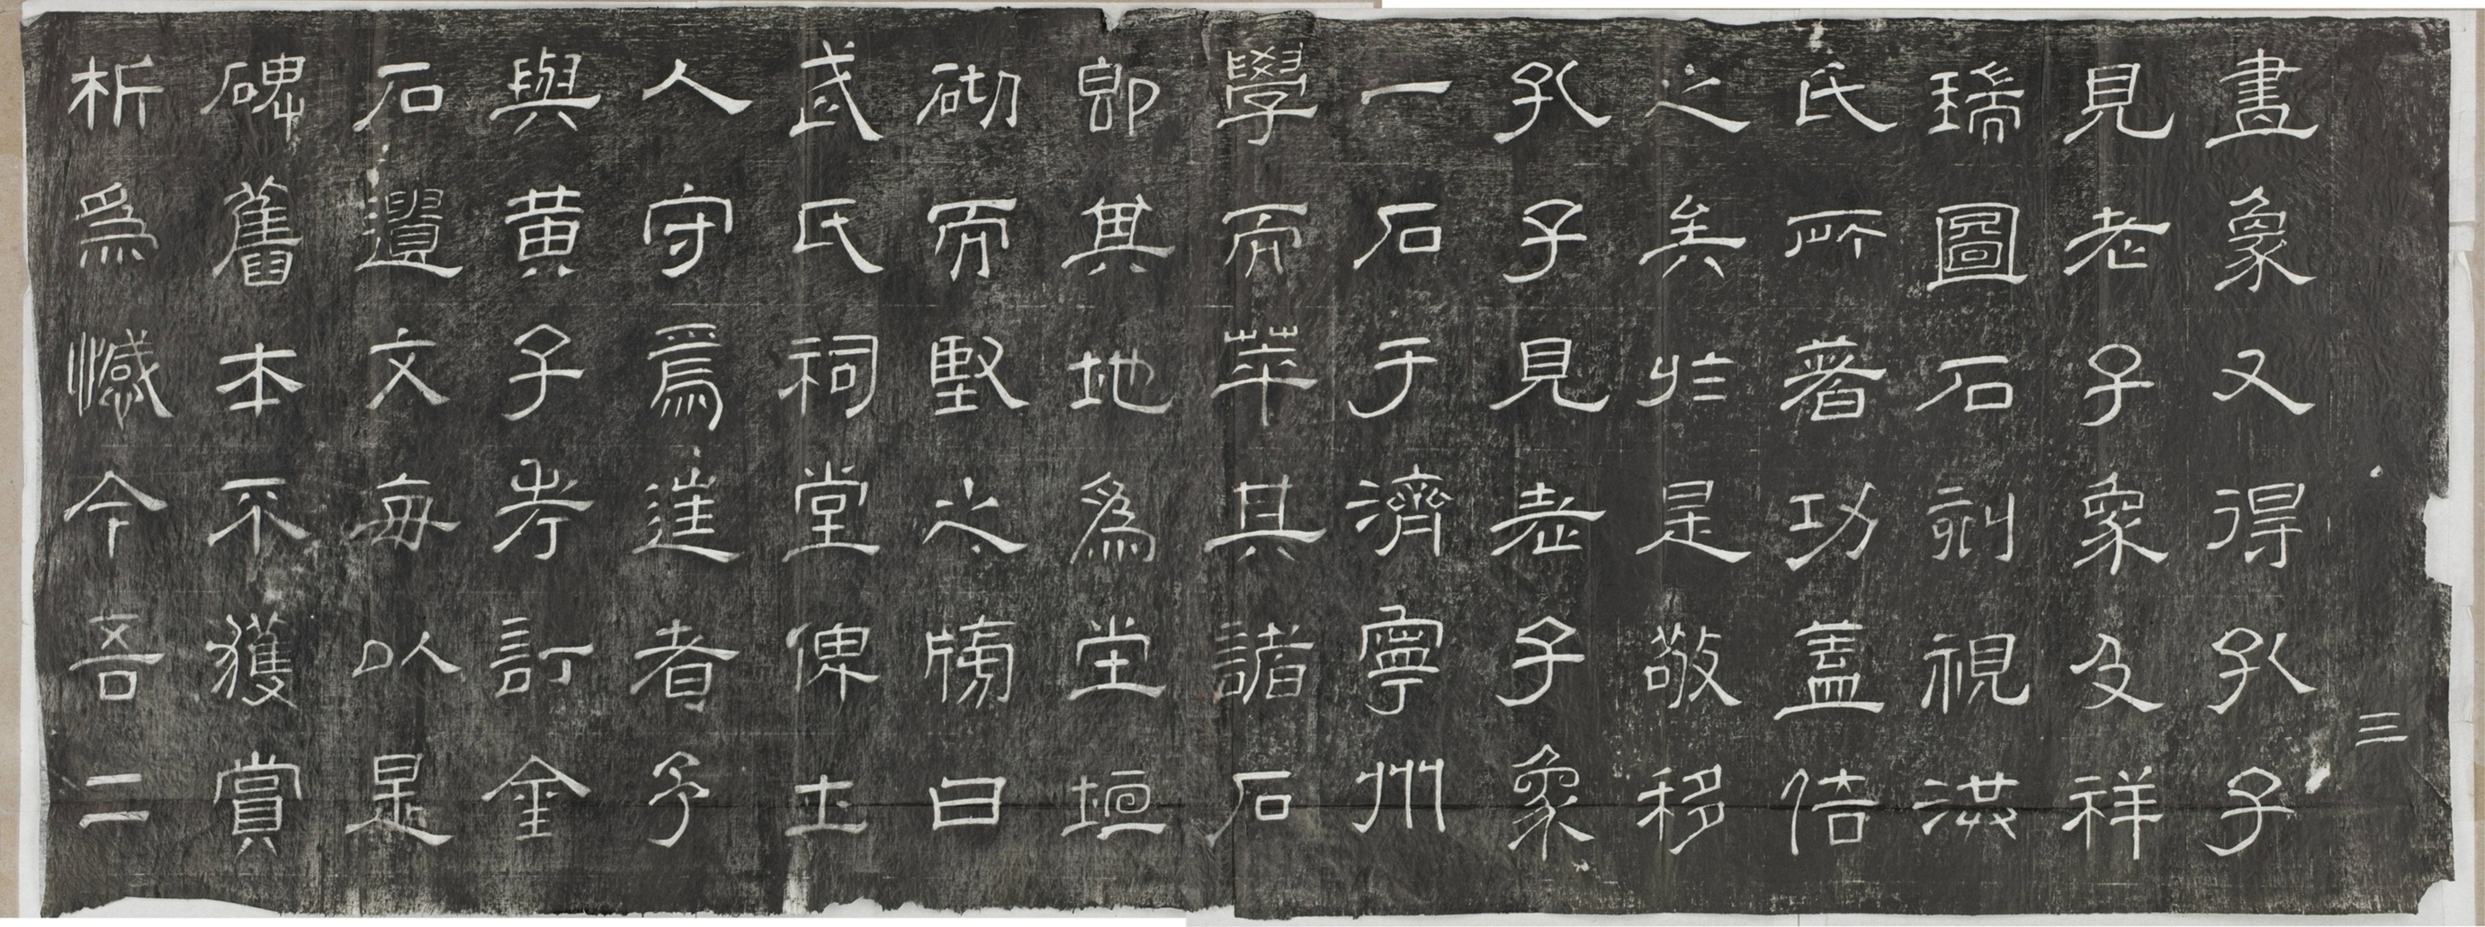 三
畫象又得孔子
見老子象及祥
瑞圖石刻視洪
氏所著功蓋倍
之矣於是敬移
孔子見老子象
一石于濟寧州
學而萃其諸石
即其地為堂垣
砌而堅之牓曰
武氏祠堂俾土
人守焉進者予
與黃子考訂金
石遺文每以是
碑舊本不獲賞
析為憾今吾二